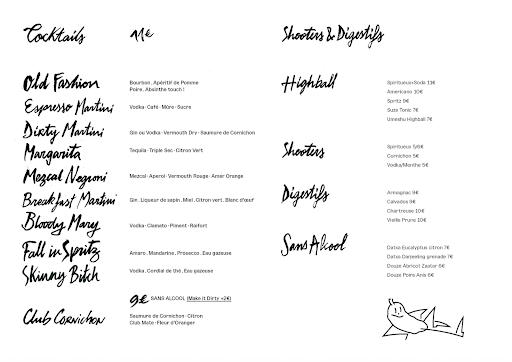 Cocktails 11€
Old Fashion Bourbon, Apéritif de Pomme
Poire, Absinthe touch !
Espresso Martini Vodka · Café · Mûre · Sucre
Dirty Martini Gin ou Vodka · Vermouth Dry · Saumure de Cornichon
Margarita Tequila · Triple Sec · Citron Vert
Mezcal Negroni Mezcal · Aperol · Vermouth Rouge · Amer Orange
Breakfast Martini Gin, Liqueur de sapin, Miel, Citron vert, Blanc d'œuf
Bloody Mary Vodka · Clamato · Piment · Raifort
Fall in Spritz Amaro, Mandarine, Prosecco, Eau gazeuse
Skinny Bitch Vodka, Cordial de thé, Eau gazeuse
9€ SANS ALCOOL (Make it Dirty +2€)
Club Cornichon Saumure de Cornichon · Citron
Club Mate · Fleur d'Oranger
Shooters & Digestifs
Highball Spiritueux+Soda 11€
Americano 10€
Spritz 9€
Suze Tonic 7€
Umeshu Highball 7€
Shooters Spiritueux 5/6€
Cornichon 5€
Vodka/Menthe 5€
Digestifs Armagnac 9€
Calvados 9€
Chartreuse 10€
Vieille Prune 10€
Sans Alcool Datxa Eucalyptus citron 7€
Datxa Darjeeling grenade 7€
Douze Abricot Zaatar 6€
Douze Poire Anis 6€